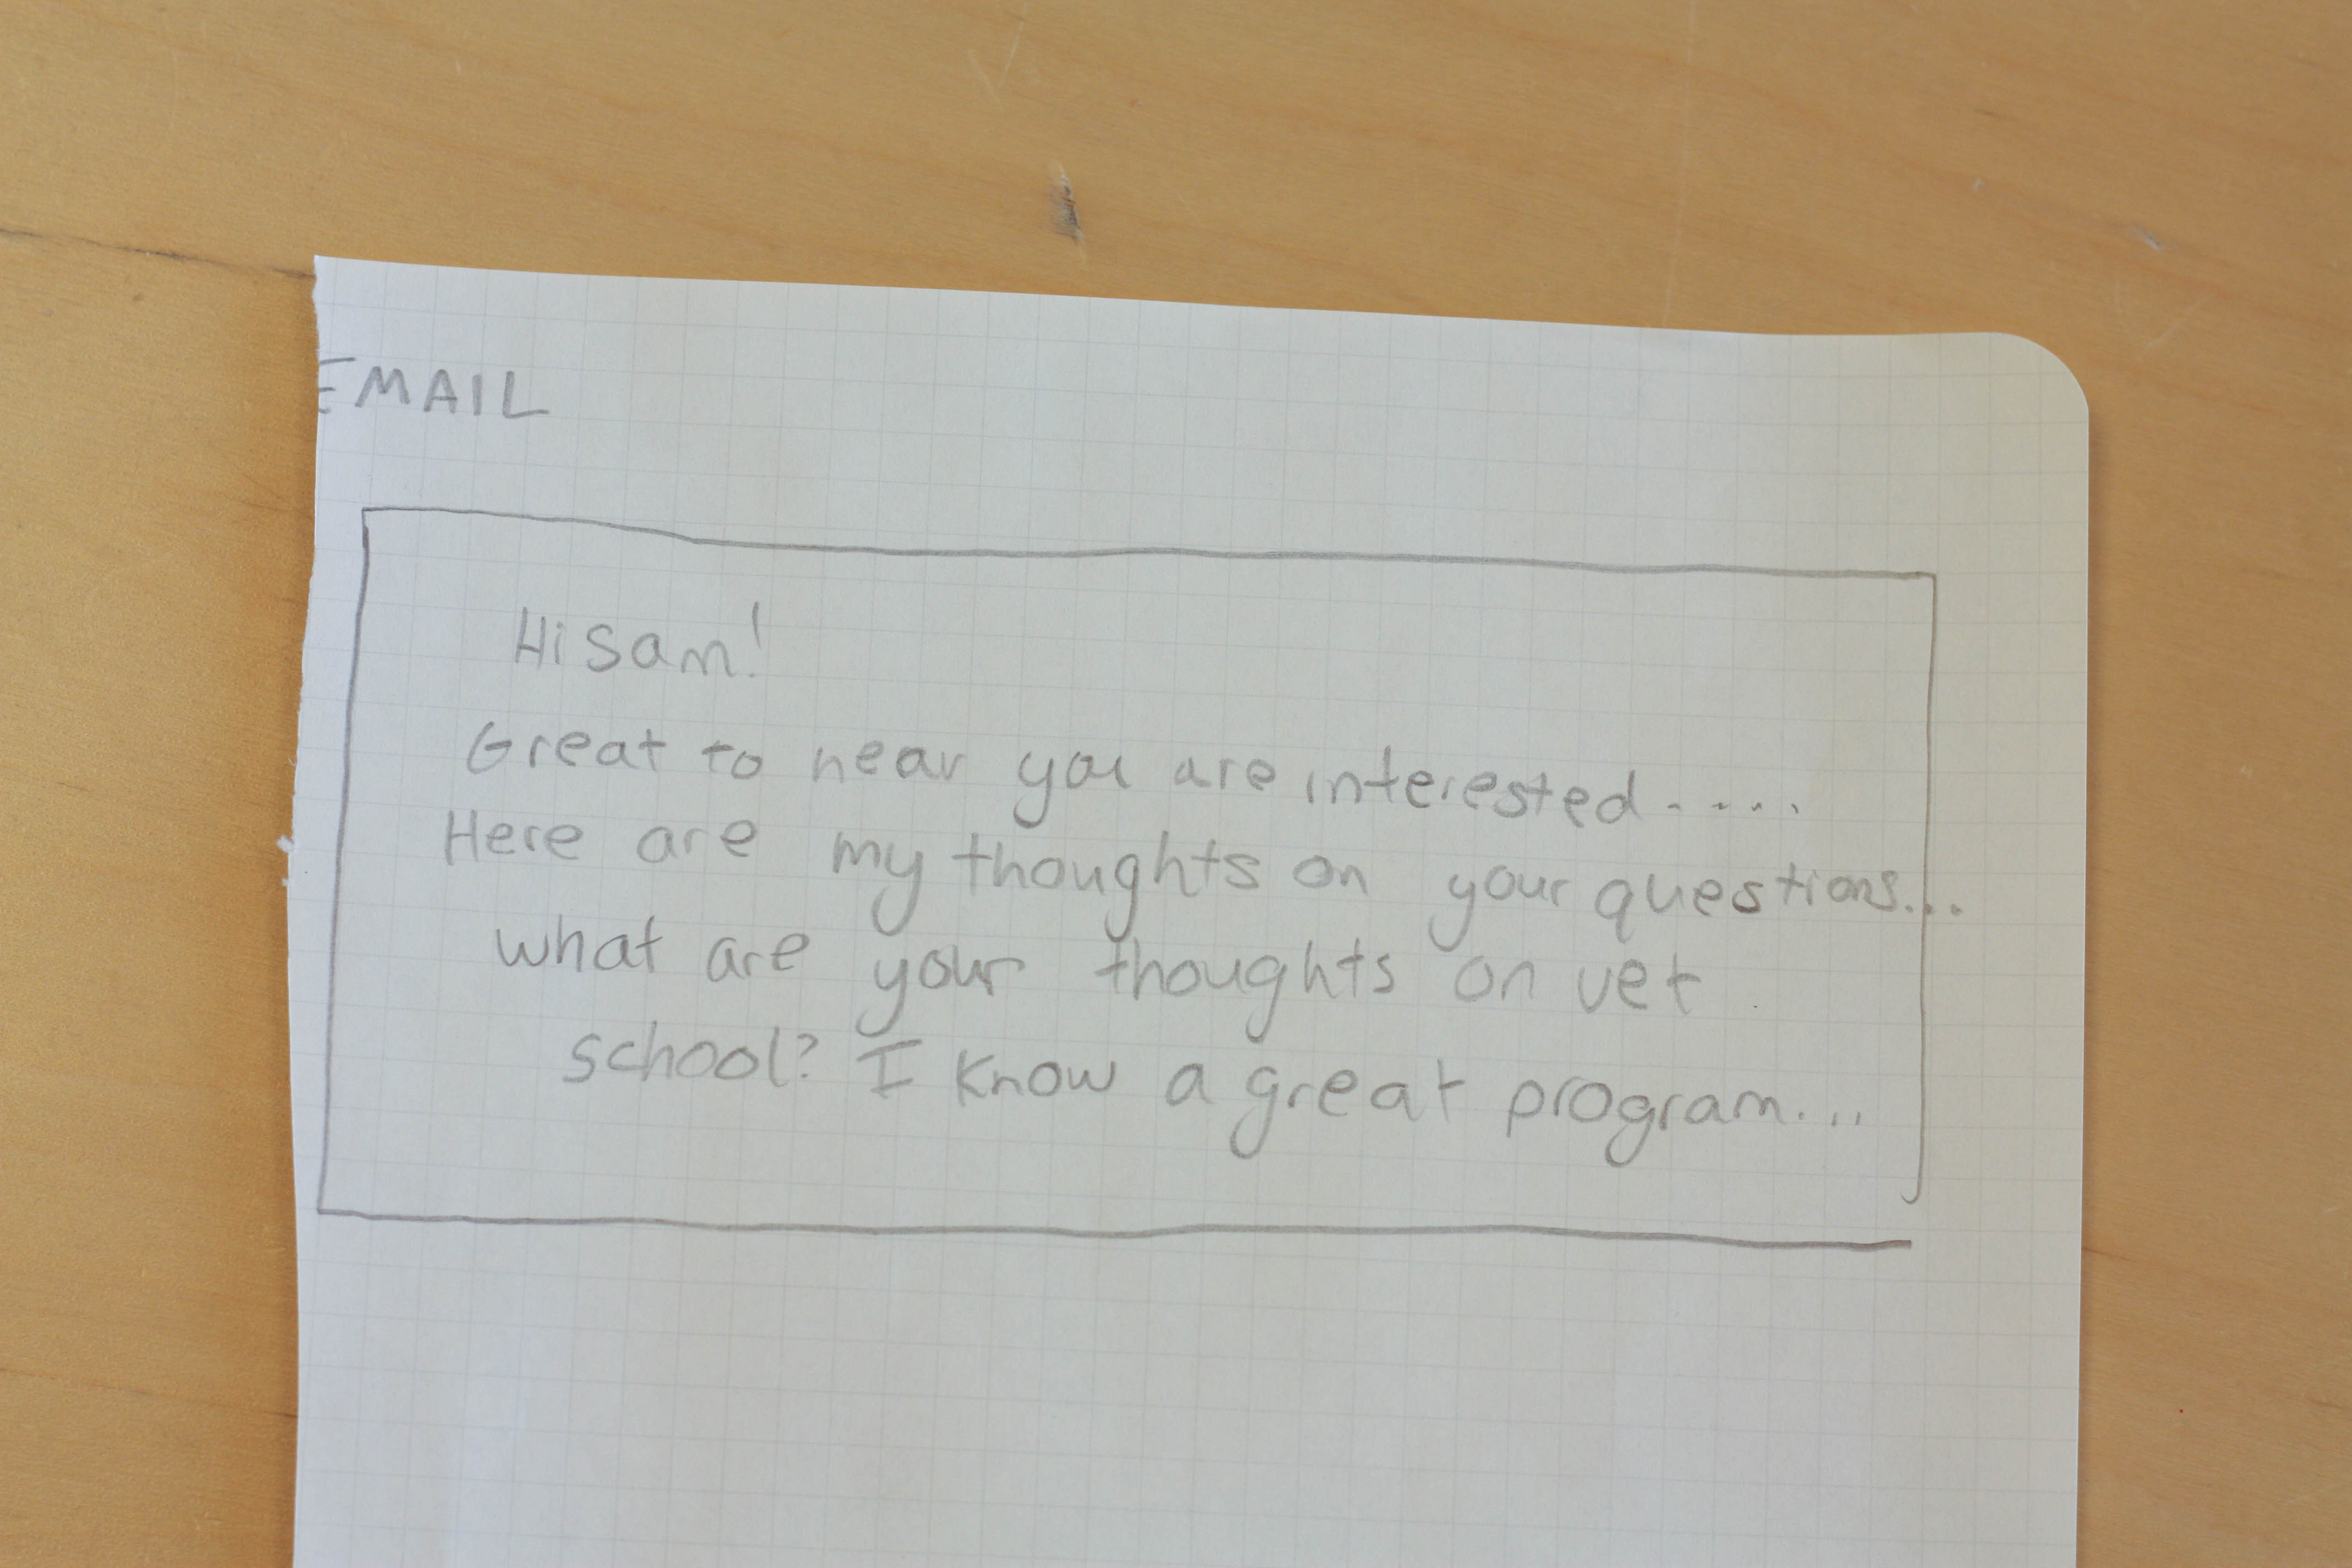 EMAIL
Hi Sam!
Great to hear you are interested.....
Here are my thoughts on your questions...
what are your thoughts on vet
school? I know a great program...